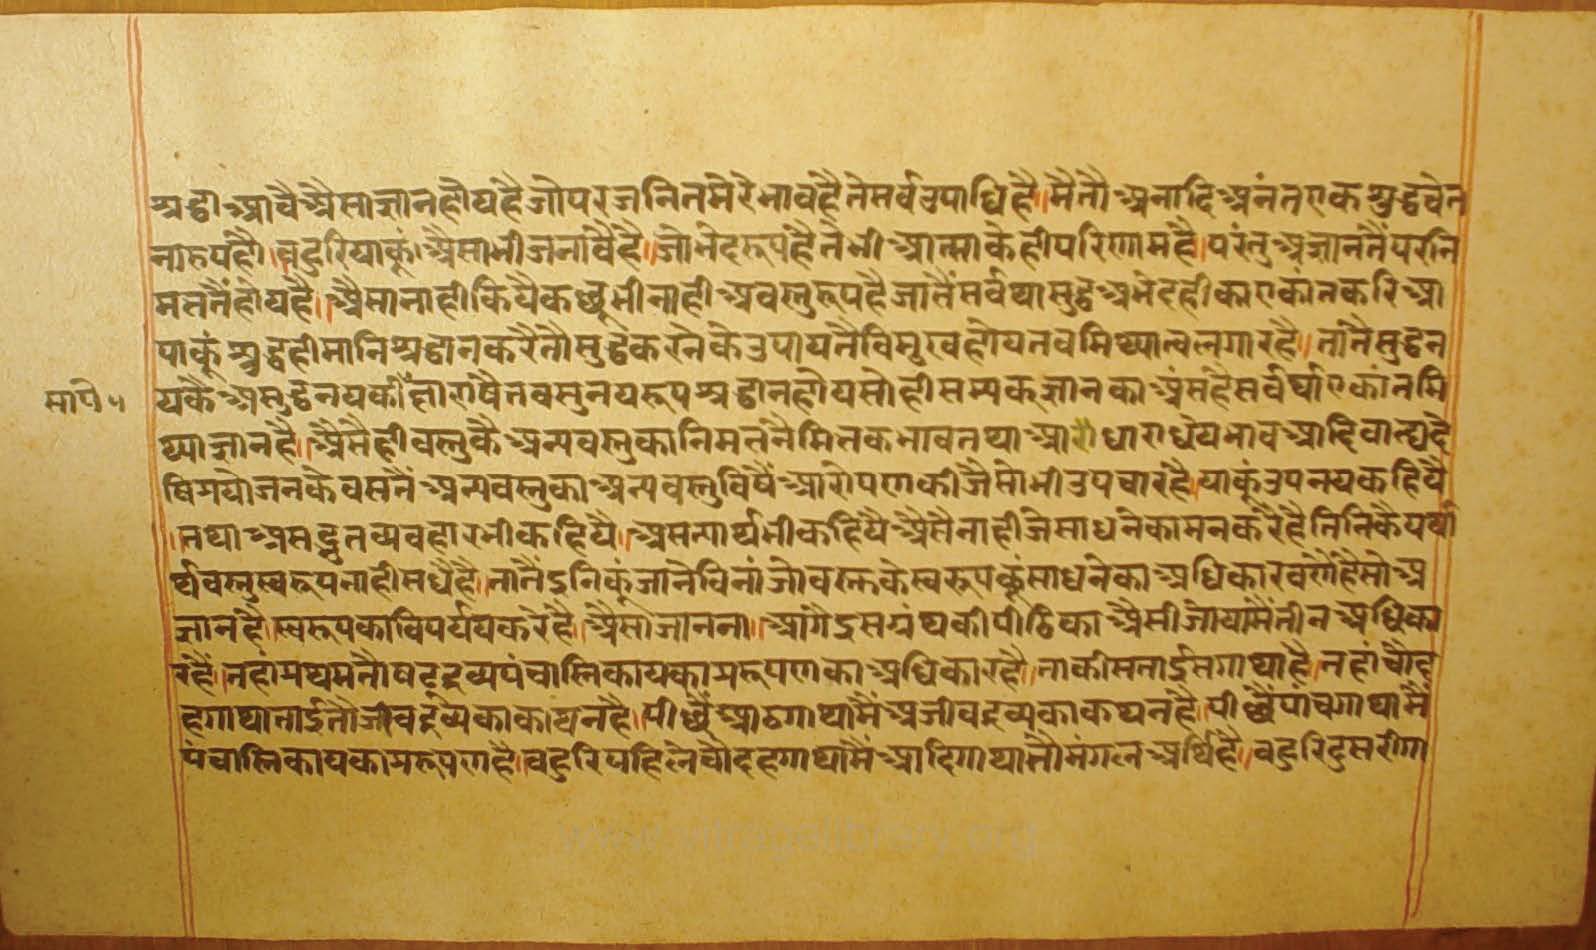 श्रद्धा आवै अैसा ज्ञान होय है जो परजनित मेरे भाव है ते सर्व उपाधि है॥ मैं तौ अनादि अनंत एक शुद्ध चेत
ना रूप हौं॥ बहुरि याकूं अैसा भी जनावै है॥ जो भेदरूप है ते भी आत्मा के ही परिणाम है॥ परंतु अज्ञानतैं परनि
मततैं होय है॥ अैसा नाही कि यै कछू भी नाही अवस्तुरूप है जातैं सर्वथा सुद्ध अभेद ही का एकांत करि आ
पाकूं शुद्ध ही मानि श्रद्धान करै तौ सुद्ध करने के उपायतैं विमुख होय तव मिथ्यात्व लगा रहै॥ तातैं सुद्ध न
साटी ५
यकै असुद्ध नयकी सारापै तव सुनयरूप श्रद्धान होय सो ही सम्यक ज्ञान का अंस है सर्वथा एकांत मि
थ्याज्ञान है॥ अैसै ही वस्तुकै अन्य वस्तु का निमत नैमितक भाव तथा आधाराधेय भाव आदि वात्प्य दे
षि प्रयोजन के वसतैं अन्य वस्तु का अन्य वस्तु विषैं आरोपण कीजै सो भी उपचार है॥ याकूं उपनय कहियै
॥ तथा असद्भुत व्यवहार भी कहियै॥ असत्यार्थ भी कहियै अैसै नाही जे साधने का मन करै है तिनिकै यथा
र्थ वस्तु स्वरूप नाही सधै है॥ तातैं इनिकूं जाने विनां जो वस्तके स्वरूपकूं साधने का अधिकार वणै है सो अ
ज्ञान है॥ स्वरूप का विपर्यय करे है॥ अैसा जानना॥ आगै इस ग्रंथ की पीठिका अैसी जो यामैं तीन अधिका
र है॥ तहां प्रथम तौ षट द्रव्य पंचास्तिकाय का प्ररूपण का अधिकार है॥ ताकी सताईस गाथा है॥ तहां चौद
ह गाथा ताई तौ जीव द्रव्य का कथन है॥ पीछैं आठ गाथा मैं अजीव द्रव्य का कथन है॥ पीछैं पांच गाथा मैं
पंचास्तिकाय का प्ररूपण है॥ बहुरि पहिले चौदह गाथा मैं आदि गाथा तौ मंगल अर्थि है॥ बहुरि दुसरी गा